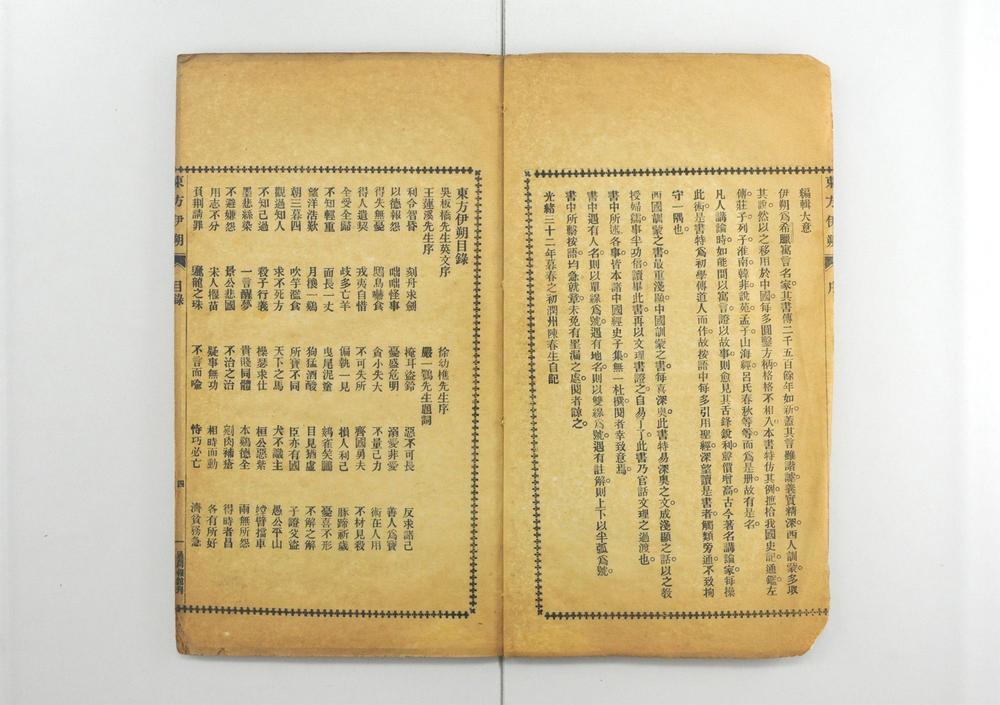 編輯大意
伊朔爲希臘寓言名家。其書傳二千五百餘年如新。蓋其言雖諧謔。義實精深。西人訓蒙。多取
其說。然以之移用於中國。每多圓鑿方柄。格格不相入。本書特仿其例。摭拾我國史記通鑑左
傳莊子列子淮南韓非說苑孟子山海經呂氏春秋等等。而爲是册。故有是名。
凡人講論時。如能間以寓言。證以故事。則愈見其舌鋒銳利。聲價增高。古今著名講論家。每操
此術。是書特爲初學傳道人而作。故按語中每多引用聖經。深望讀是書者。觸類旁通。不致拘
守一隅也。
西國訓蒙之書。最重淺顯。中國訓蒙之書。每喜深奧。此書特易深奧之文。成淺顯之話。以之教
授婦孺。事半功倍。讀畢此書。再以文理書證之。自易了了。此書乃官話文理之過渡也。
書中所述各事。皆本諸中國經史子集。無一杜撰。閱者幸致意焉。
書中遇有人名。則以單線爲號。遇有地名。則以雙線爲號。遇有註解。則上下以半弧爲號。
書中所繫按語。均急就章。未免有罣漏之處。閱者諒之。
光緒三十二年暮春之初潤州陳春生自記
東方伊朔 序
東方伊朔目錄
吳板橋先生英文序 徐幼樵先生序
王蓮溪先生序 嚴一鶚先生題詞
利令智昏 刻舟求劍 掩耳盜鈴 惡不可長 反求諸己
以德報怨 咄咄怪事 憂盛危明 溺愛非愛 善人爲寶
得失無憂 鴟鳥嚇食 貪小失大 不量己力 術在人用
得人遺契 戎夷自惜 不可失所 齊國勇夫 不材見殺
全受全歸 歧多亡羊 偏執一見 損人利己 豚蹄祈歲
不知輕重 面長一丈 曳尾泥塗 鴳雀笑鵬 憂喜不形
望洋浩歎 月攘一鷄 狗猛酒酸 目見猶虛 不解之解
朝三暮四 吹竽濫食 所寶不同 臣亦有國 子證父盜
觀過知人 求不死方 天下之馬 犬不識主 愚公平山
不知己過 殺子行義 操瑟求仕 桓公惡紫 螳臂擋車
墨悲絲染 一言醒夢 貴賤同體 本鷄德全 雨無所怨
不避嫌怨 景公悲國 不治之治 剜肉補瘡 得時者昌
用志不分 宋人揠苗 疑事無功 相時而動 各有所好
負荆請罪 驪龍之珠 不言而喻 恃巧必亡 濟貧務急
東方伊朔 目錄 四